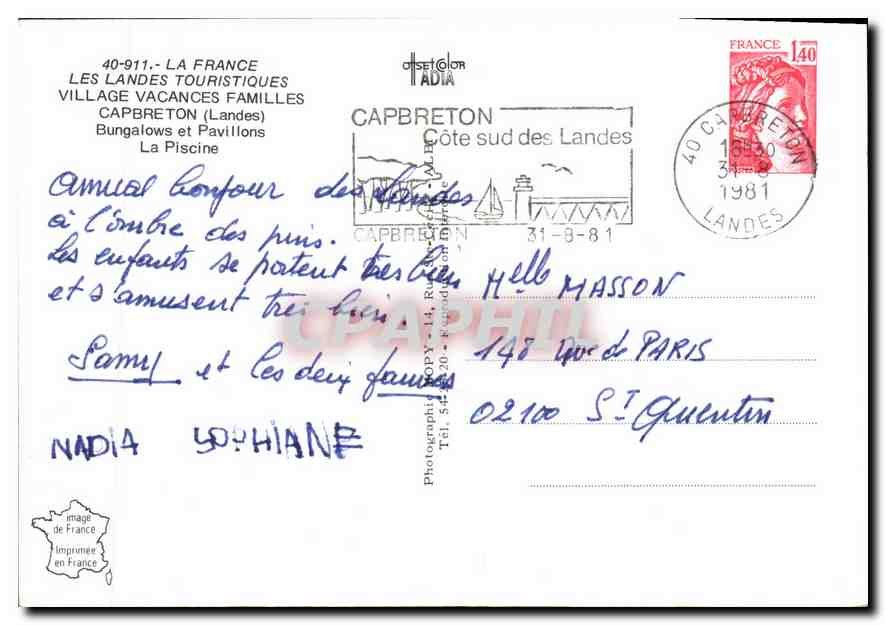 40-911.- LA FRANCE
LES LANDES TOURISTIQUES
VILLAGE VACANCES FAMILLES
CAPBRETON (Landes)
Bungalows et Pavillons
La Piscine
OFFSET COLOR
ADIA
CAPBRETON
Côte sud des Landes
CAPBRETON 31-8-81
FRANCE
1,40
40 CAPBRETON
16-30
31-8
1981
LANDES
Amical bonjour des Landes
à l'ombre des pins.
Les enfants se portent très bien
et s'amusent très bien.
Samy et les deux
NADIA SOPHIANE
Melle MASSON
148 Rue de PARIS
02100 St Quentin
Photographie POPY - 14, Rue
Tél. 54 20 - Reproduction interdite
CPAPHIL
image
de France
Imprimée
en France